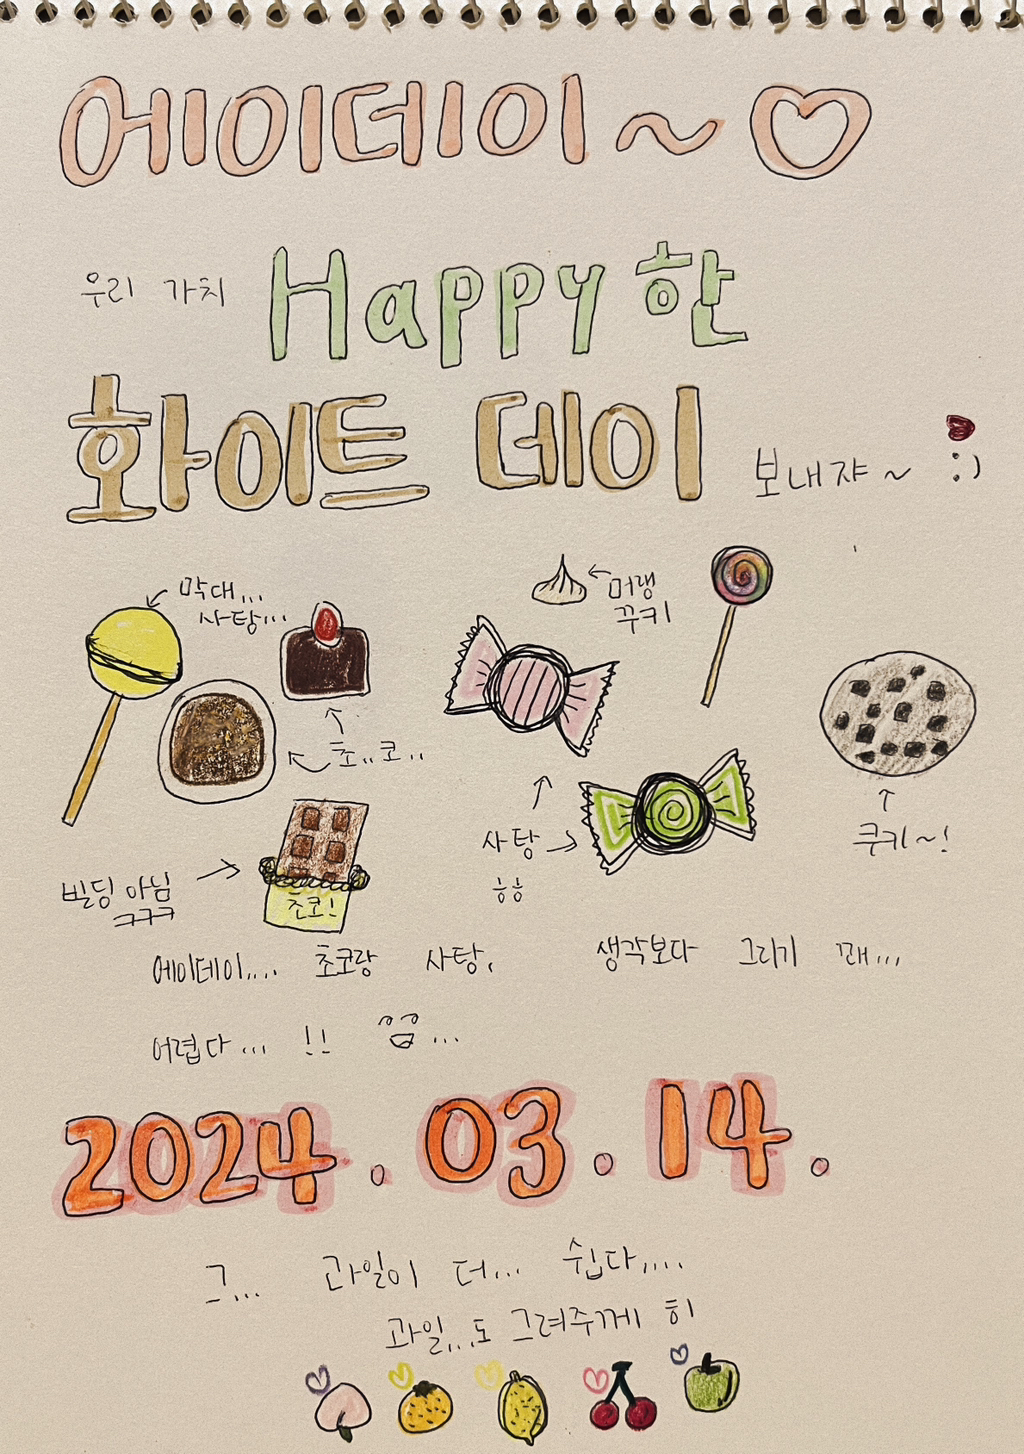 에이데이~♡
우리 가치 Happy 한
화이트 데이 보내쟈~ :)
막대...
사탕...
머랭
꾸키
초..코..
사탕
힝힝
쿠키~!
빌딩 아님
ㅋㅋㅋ
초코!
에이데이.... 초코랑 사탕, 생각보다 그리기 꽤...
어렵다... !! 끔...
2024.03.14.
그... 과일이 더... 쉽다....
과일...도 그려주께 히